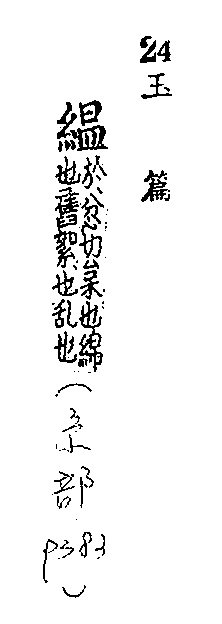 24
玉篇
緼
於忿切枲也綿
也舊絮也乱也
(糸部
p383)